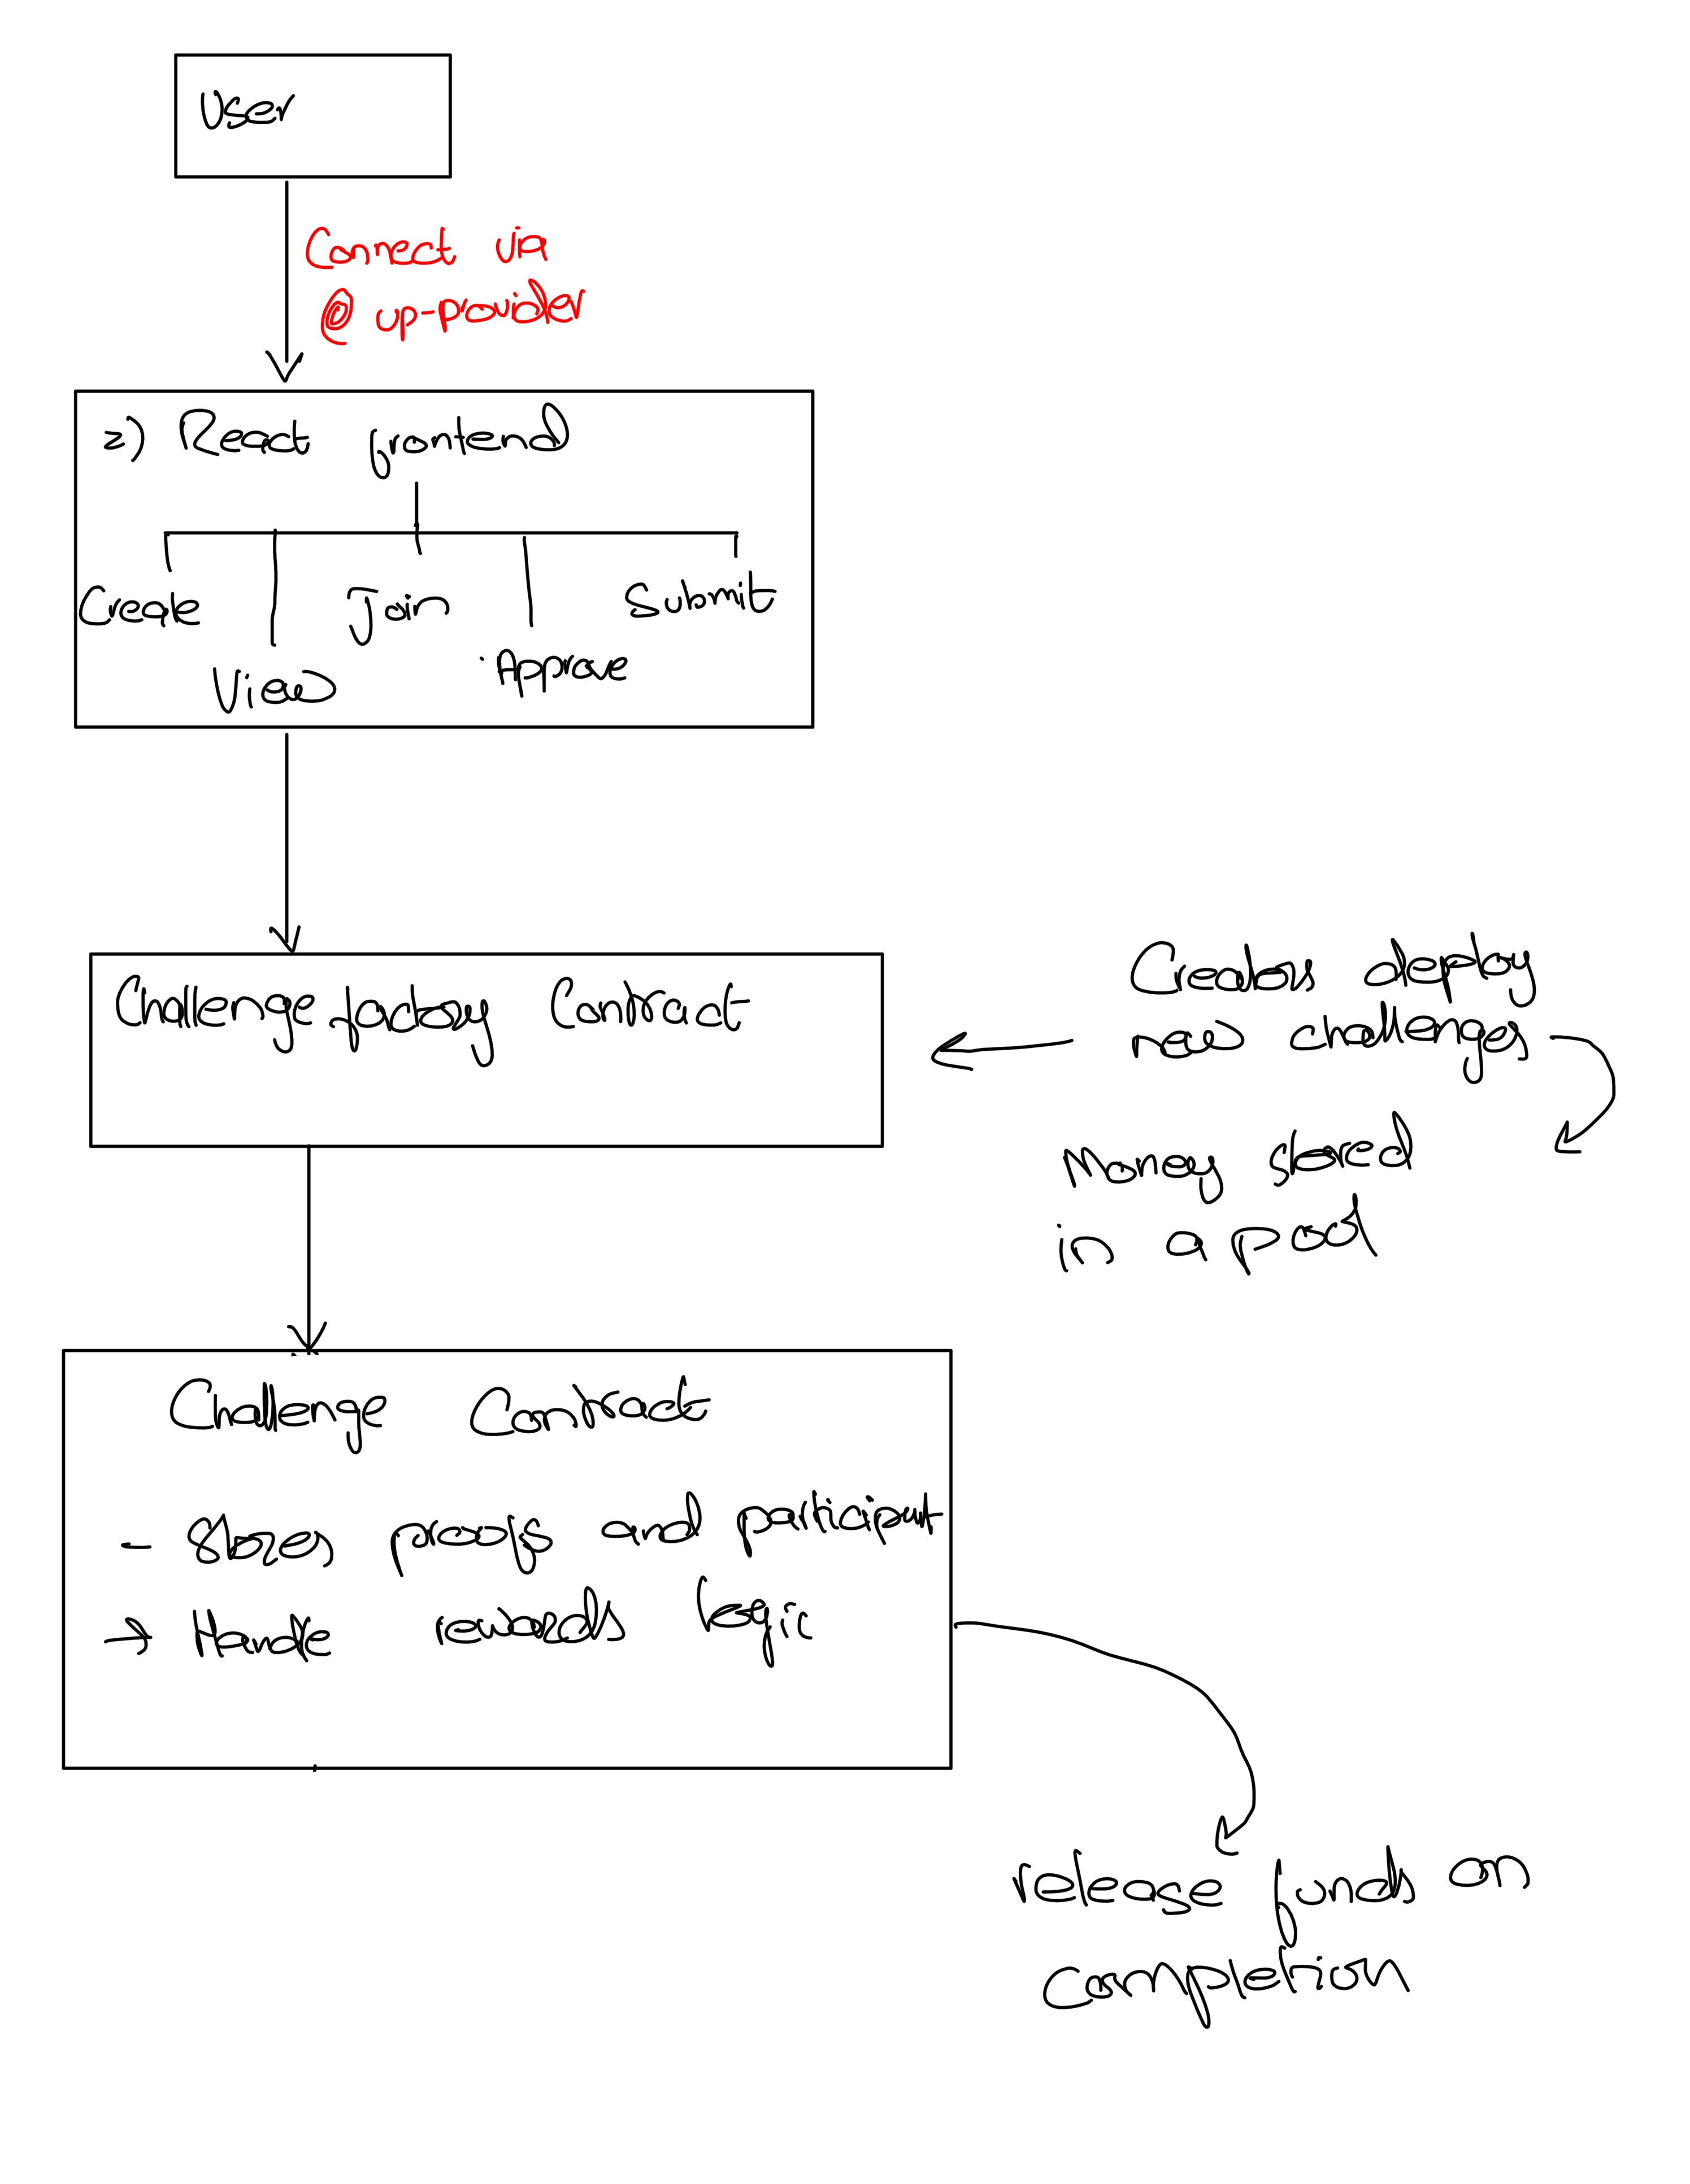 User
Connect via
@ up-provider
2) React frontend
Create
View
Join
Approve
Submit
Challenge factory Contract
Creators deploy
new challenges
Money stored
in a pool
Challenge Contract
- Stores proofs and participant
→ Handle rewards logic
release funds on
completion